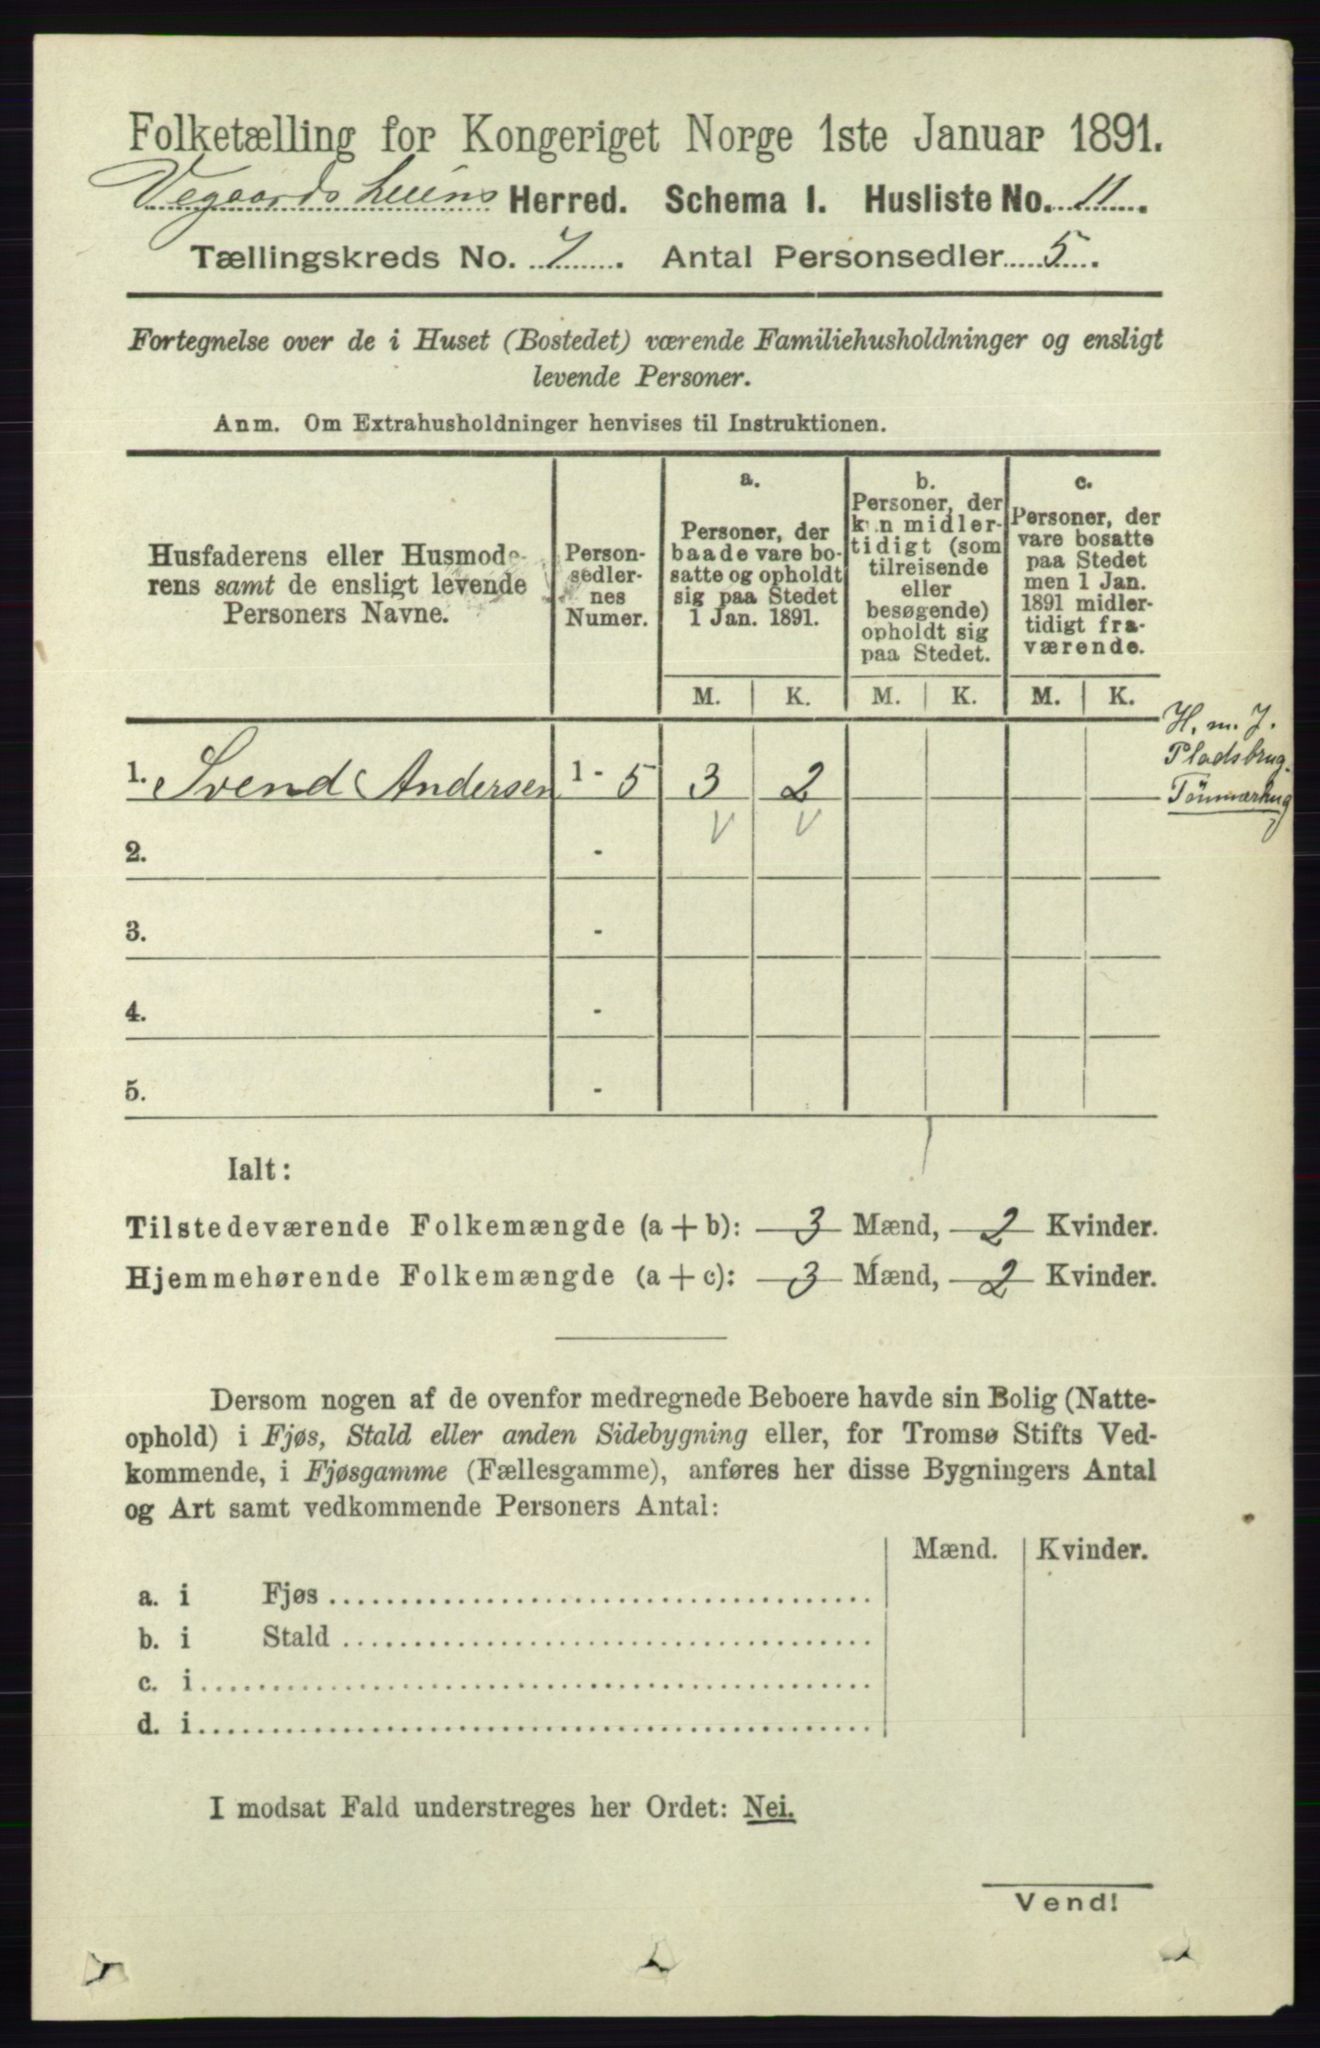 Folketælling for Kongeriget Norge 1ste Januar 1891.
Vegaardsheiens Herred. Schema I. Husliste No. 11.
Tællingskreds No. 7. Antal Personsedler 5.
Fortegnelse over de i Huset (Bostedet) værende Familiehusholdninger og ensligt
levende Personer.
Anm. Om Extrahusholdninger henvises til Instruktionen.
Husfaderens eller Husmode-
rens samt de ensligt levende
Personers Navne.
Person-
sedler-
nes
Numer.
a.
Personer, der
baade vare bo-
satte og opholdt
sig paa Stedet
1 Jan. 1891.
b.
Personer, der
kun midler-
tidigt (som
tilreisende
eller
besøgende)
opholdt sig
paa Stedet.
c.
Personer, der
vare bosatte
paa Stedet
men 1 Jan.
1891 midler-
tidigt fra-
værende.
M. K. M. K. M. K.
H. m. J.
Pladsbrug.
1. Svend Andersen 1 - 5 3 2
2. -
3. -
4. -
5. -
Ialt:
Tilstedeværende Folkemængde (a + b): 3 Mænd, 2 Kvinder.
Hjemmehørende Folkemængde (a + c): 3 Mænd, 2 Kvinder.
Dersom nogen af de ovenfor medregnede Beboere havde sin Bolig (Natte-
ophold) i Fjøs, Stald eller anden Sidebygning eller, for Tromsø Stifts Ved-
kommende, i Fjøsgamme (Fællesgamme), anføres her disse Bygningers Antal
og Art samt vedkommende Personers Antal:
Mænd. Kvinder.
a. i Fjøs
b. i Stald
c. i
d. i
I modsat Fald understreges her Ordet: Nei.
Vend!